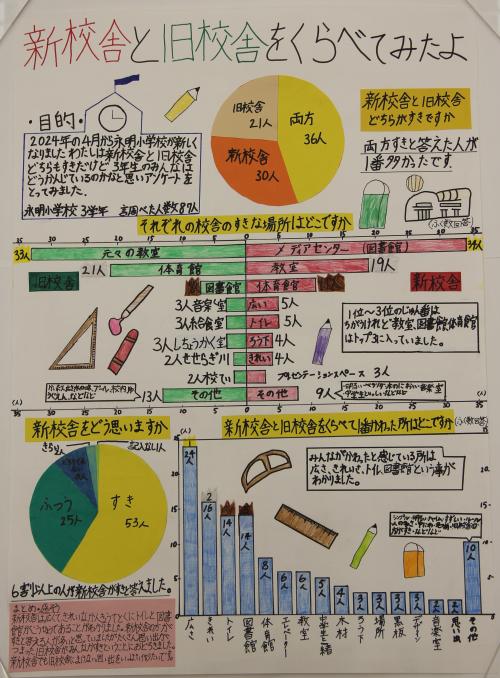 新校舎と旧校舎をくらべてみたよ
・目的・
2024年の4月から永明小学校が新しく
なりました。わたしは新校舎と旧校舎
どちらもすきだけど3年生のみんなは
どうかんじているのかなと思いアンケートを
とってみました。
永明小学校 3学年 調べた人数87人
旧校舎
21人
両方
36人
新校舎
30人
新校舎と旧校舎
どちらがすきですか
両方すきと答えた人が
1番多かったです。
それぞれの校舎のすきな場所はどこですか
(ふく数回答)
33人
元々の教室
メディアセンター(図書館)
34人
21人
体育館
教室
19人
旧校舎
図書館
体育館
新校舎
3人音楽室
広い
5人
3人給食室
トイレ
5人
3人しちょうかく室
ろう下
4人
2人せせらぎ川
きれい
4人
2人校てい
プレゼンテーションスペース 3人
13人
その他
その他
9人
1位〜3位のじゅん番は
ちがうけれど教室、図書館、体育館は
トップ3に入っていました。
新校舎をどう思いますか
きらい
記入なし1人
ふつう
25人
すき
53人
6割以上の人が新校舎がすきと答えました。
新校舎と旧校舎をくらべて1番かわった所はどこですか
(ふく数回答)
みんながかわったと感じている所は
広さ、きれいさ、トイレ、図書館という事が
わかりました。
24人
16人
14人
14人
8人
6人
6人
5人
4人
3人
3人
3人
3人
2人
2人
10人
広さ
きれい
トイレ
図書館
体育館
エレベーター
教室
中学生と一緒
木材
ろう下
場所
黒板
デザイン
音楽室
思い出
その他
まとめ・感そう